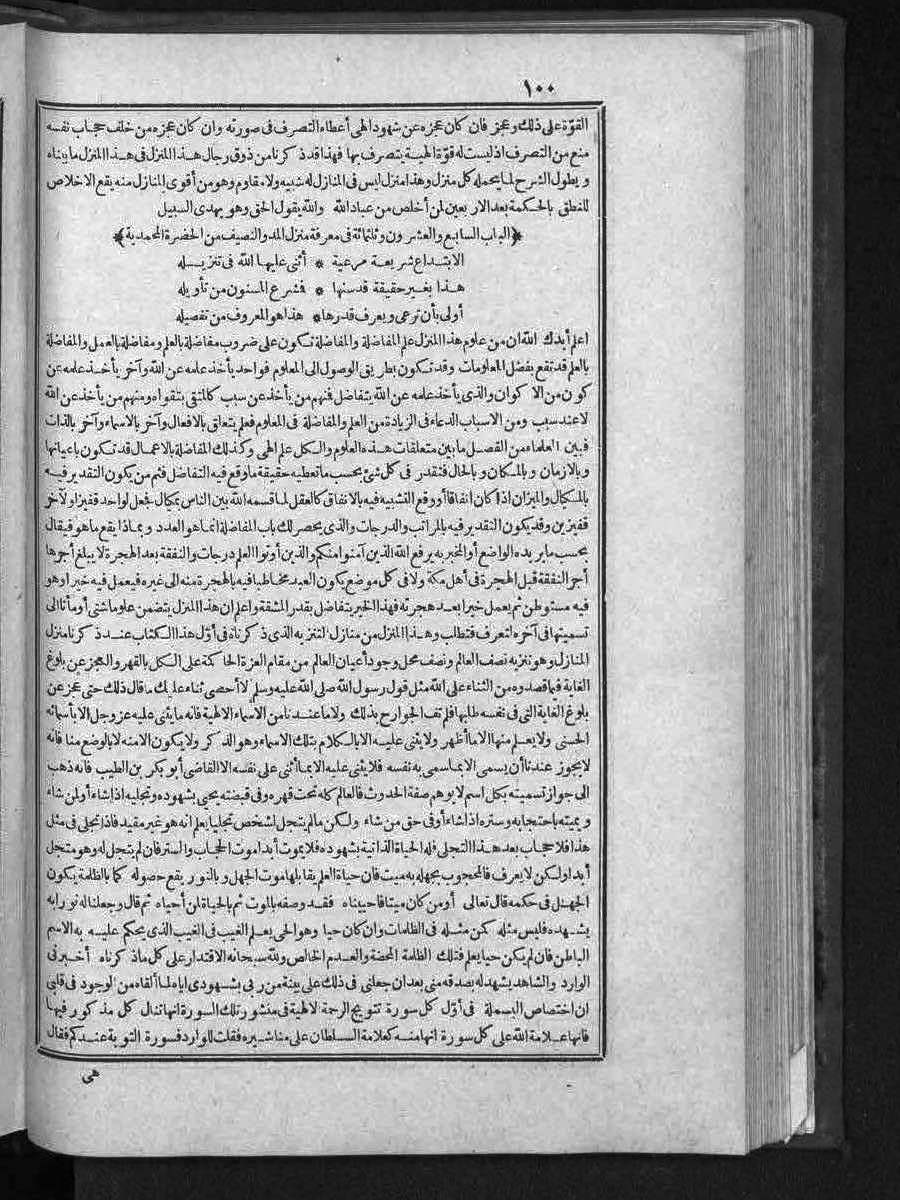 ١٠٠
القوّة على ذلك وعجز فان كان عجزه عن شهود الهى أعطاه التصرف فى صورته وان كان عجزه من خلف حجاب نفسه
منع من التصرف اذ ليست له قوّة الهية يتصرف بها فهذا قد ذكرنا من ذوق رجال هذا المنزل فى هذا المنزل ما بيناه
ويطول الشرح لما يحمله كل منزل وهذا منزل ليس فى المنازل له شبيه ولا مقاوم وهو من أقوى المنازل منه يقع الاخلاص
للنطق بالحكمة بعد الاربعين لمن أخلص من عباد الله والله يقول الحق وهو يهدى السبيل
﴿الباب السابع والعشرون وثلثمائة فى معرفة منزل المد والنصيف من الحضرة المحمدية﴾
الابتداع شريعة مرعية * أثنى عليها الله فى تنزيله
هذا بغير حقيقة قد سنها * فشرع المسنون من تأويله
أولى بأن ترعى ويعرف قدرها * هذا هو المعروف من تفصيله
اعلم أيدك الله ان من علوم هذا المنزل علم المفاضلة والمفاضلة تكون على ضروب مفاضلة بالعلم ومفاضلة بالعمل والمفاضلة
بالعلم قد تقع بفضل المعلومات وقد تكون بطريق الوصول الى المعلوم فواحد يأخذ علمه عن الله وآخر يأخذ علمه عن
كون من الاكوان والذى يأخذ علمه عن الله يتفاضل فنهم من يأخذ عن سبب كالمتقى بتقواه ومنهم من يأخذ عن الله
لا عند سبب ومن الاسباب الدعاء فى الزيادة من العلم والمفاضلة فى المعلوم فعلم يتعلق بالافعال وآخر بالاسماء وآخر بالذات
فبين العلماء من الفضل ما بين متعلقات هذه العلوم والكل علم الهى وكذلك المفاضلة بالاعمال قد تكون باعيانها
وبالازمان وبالمكان وبالحال فتقدر فى كل شئ بحسب ما تعطيه حقيقة ما وقع فيه التفاضل فثم من يكون التقدير فيه
بالمكيال والميزان اذا كان انفاقا أو وقع التشبيه فيه بالانفاق كالعقل لما قسمه الله بين الناس بمكيال فجعل لواحد قفيزا ولآخر
قفيزين وقد يكون التقدير فيه بالمراتب والدرجات والذى يحصر لك باب المفاضلة انما هو العدد وبماذا يقع ما هو فيقال
بحسب ما يريده الواضع أو المخبر به يرفع الله الذين آمنوا منكم والذين أوتوا العلم درجات والنفقة بعد الهجرة لا يبلغ أجرها
أجر النفقة قبل الهجرة فى أهل مكة ولا فى كل موضع يكون العبد مخاطبا فيه بالهجرة منه الى غيره فيعمل فيه خيرا وهو
فيه مستوطن ثم يعمل خيرا بعد هجرته فهذا الخير يتفاضل بقدر المشقة واعلم ان هذا المنزل يتضمن علوما شتى أومأنا الى
تسميتها فى آخره لتعرف فتطلب وهذا المنزل من منازل التنزيه الذى ذكرناه فى أوّل هذا الكتاب عند ذكرنا منزل
المنازل وهو تنزيه نصف العالم ونصف محل وجود أعيان العالم من مقام العزة الحاكمة على الكل بالقهر والعجز عن بلوغ
الغاية فيما قصدوه من الثناء على الله مثل قول رسول الله صلى الله عليه وسلم لا أحصى ثناء عليك ما قال ذلك حتى عجز عن
بلوغ الغاية التى فى نفسه طلبها فلم تف الجوارح بذلك ولا ما عندنا من الاسماء الالهية فانه ما يثنى عليه عز وجل الا بأسمائه
الحسنى ولا يعلم منها الا ما أظهر ولا يثنى عليه الا بالكلام بتلك الاسماء وهو الذكر ولا يكون الا منه لا بالوضع منا فانه
لا يجوز عندنا أن يسمى الا بما سمى به نفسه فلا يثنى عليه الا بما أثنى على نفسه الا القاضى أبو بكر بن الطيب فانه ذهب
الى جواز تسميته بكل اسم لا يوهم صفة الحدوث فالعالم كله تحت قهره وفى قبضته يحيى بشهوده وتجليه اذا شاء أو لمن شاء
ويميته باحتجابه وستره اذا شاء أو فى حق من شاء ولكن ما لم يتجل لشخص تجليا يعلم انه هو غير مقيد فاذا تجلى فى مثل
هذا فلا حجاب بعد هذا التجلى فله الحياة الذاتية بشهوده فلا يموت أبدا موت الحجاب والستر فان لم يتجل له وهو متجل
أبدا ولكن لا يعرف فالمحجوب بجهله به ميت فان حياة العلم يقابلها موت الجهل وبالنور يقع حصوله كما بالظلمة يكون
الجهل فى حكمه قال تعالى أو من كان ميتا فاحييناه فقد وصفه بالموت ثم بالحياة لمن أحياه ثم قال وجعلنا له نورا به
يشهده فليس مثله كمن مثله فى الظلمات وان كان حيا وهو الحى بعلم الغيب فى الغيب الذى يحكم عليه به الاسم
الباطن فان لم يكن حيا بعلم فتلك الظلمة المحضة والعدم الخالص ولله سبحانه الاقتدار على كل ما ذكرناه أخبرنى
الوارد والشاهد يشهد له بصدقه منى بعد ان جعلنى فى ذلك على بينة من ربى بشهودى اياه لما ألقاه من الوجود فى قلبى
ان اختصاص البسملة فى أوّل كل سورة تتويج الرحمة الالهية فى منشور تلك السورة انها تنال كل مذكور فيها
فانها علامة الله على كل سورة انها منه كعلامة السلطان على مناشيره فقلت للوارد فسورة التوبة عندكم فقال
هى